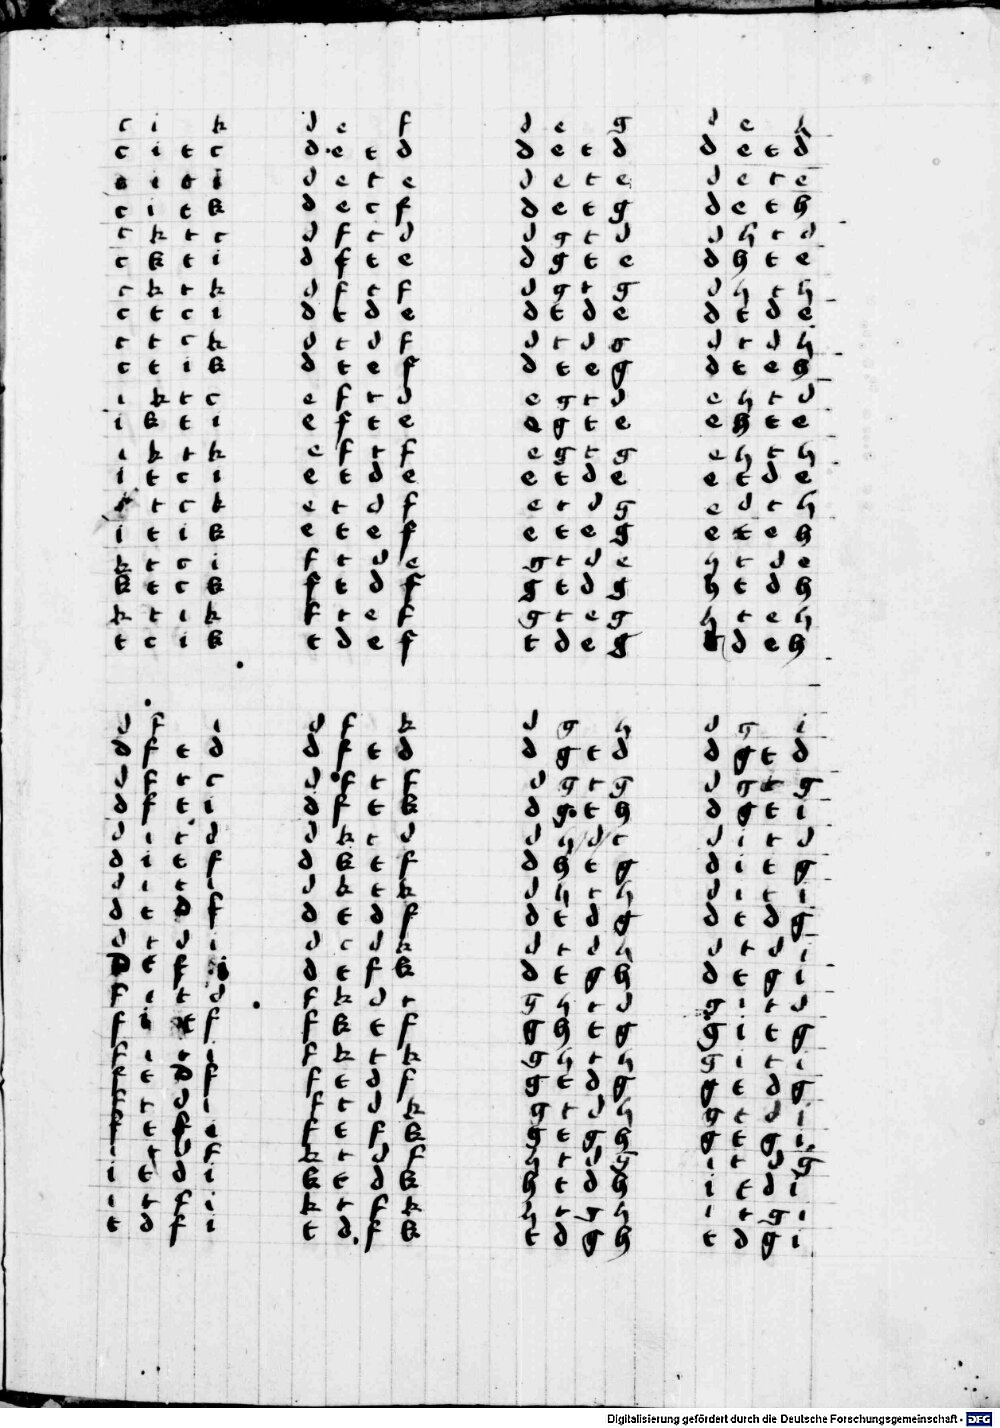 c i k d e f d e g d e h
c i t c d e t d d e t d d e t d
c i t i d e t e d e t e d e t e
c i t k d e t f d e t g d e t h
c k t c d f t d d g t d d h t d
c k t i d f t e d g t e d h t e
c k t k d f t f d g t g d h t h
c t c i d t d e d t d e d t d e
c t c k d t d f d t d g d t d h
c t i k d t e f d t e g d t e h
i k t c e f t d e g t d e h t d
i k t i e f t e e g t e e h t e
i k t k e f t f e g t g e h t h
i t c i e t d e e t d e e t d e
i t c k e t d f e t d g e d t h
i t i k e t e f e t e g e t e h
k t c i f t d e g t d e h t d e
k t c k f t d f g t d g h t d h
k t i k f t e f g t e g h t e h
t c i k t d e f t d e g t d e h
d f i d f k d g h d g i
d f t d d f t d d g t d d g t d
d f t f d f t f d g t g d g t g
d f t i d f t k d g t h d g t i
d i t d d k t d d h d t d i t d
d i t f d k t f d h t g d i t g
d i t i d k t k d h t h d i t i
d t d f d t d f d t d g d t d g
d t d i d t d k d t d h d t d i
d t f i d t f k d t g h d t g i
f i t d f k d t g h t d g i t d
f i t f f k t f g h t g g i t g
f i t i f k t k g h t h g i t i
f t d f f t d f g t d g g t d g
f t d i f t d k g t d h g t d i
f t f i f t f k g t g h g t g i
i t d f k t d f h t d g i t d g
i t d i k t d k h t d h i t d i
i t f i k t f k h t g h i t g i
t d f i t d f k t d g h t d g i
Digitalisierung gefördert durch die Deutsche Forschungsgemeinschaft - DFG